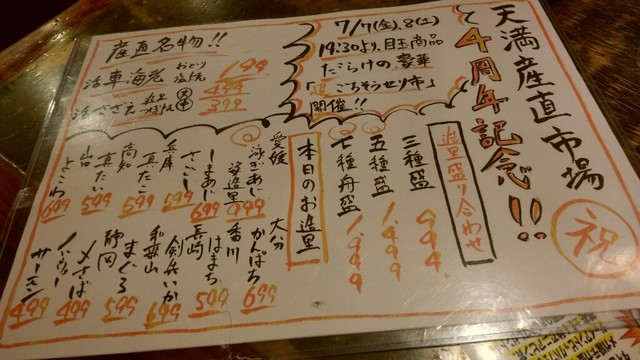 天満産直市場
4周年記念!!
祝
7/7(金).8(土)
19:30より、目玉商品
だらけの、豪華
ごちそうせり市」
開催!!
産直名物!!
活車海老 おどり 塩焼 199
活さざえ 499
399
造里盛り合わせ
三種盛 999
五種盛 1.499
七種舟盛 1.999
本日のお造里
愛媛
泳ぎあじ
姿造里 999
しまあじ 699
さごし 599
兵庫
真だこ 599
高知
真たい 599
山口
よこわ 699
大分
かんぱち 699
香川
はまち 599
長崎
剣先いか 699
和歌山
まぐろ 599
静岡
〆さば 499
ノルウェー
サーモン 499